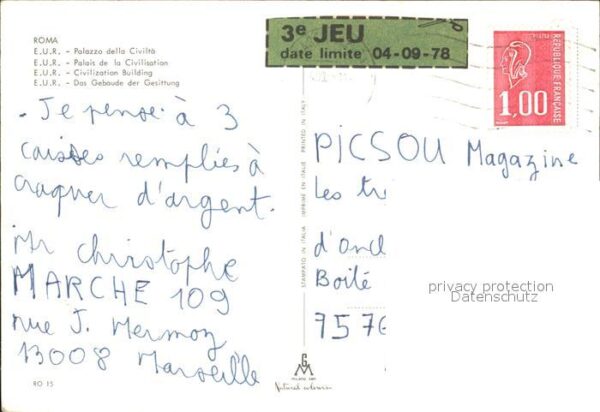 ROMA
E.U.R. - Palazzo della Civiltà
E.U.R. - Palais de la Civilisation
E.U.R. - Civilization Building
E.U.R. - Das Gebaude der Gesittung
3e JEU
date limite 04-09-78
RÉPUBLIQUE FRANÇAISE
POSTES
1,00
- Je pense à 3
caisses remplies à
craquer d'argent.
Mr Christophe
MARCHE 109
rue J. Mermoz
13008 Marseille
STAMPATO IN ITALIA IMPRIMÉ EN ITALIE PRINTED IN ITALY
PICSOU Magazine
Les tr
d'oncl
Boîte
7576
privacy protection
Datenschutz
RO 15